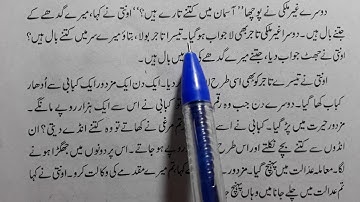 دوسرے غیر ملکی تاجر نے پوچھا ”آسمان میں کتنے تارے ہیں؟“ اونتی نے کہا، میرے گدھے کے
جتنے بال ہیں۔ دوسرا غیر ملکی تاجر بھی لا جواب ہو گیا۔ تیسرا تاجر بولا، بتاؤ میرے سر میں کتنے بال ہیں؟
اونتی نے جھٹ جواب دیا، جتنے میرے گدھے کی میں بال ہیں۔
اونتی نے تیسرے تاجر کو بھی اسی طرح ایک دن ایک مزدور ایک کبابی سے اُدھار
کباب کھا گیا۔ دوسرے دن جب وہ رقم کبابی نے اس سے ایک ہزار روپے مانگے۔
مزدور حیرت میں پڑ گیا۔ کبابی نے کہا مرغی نہ کھاتے تو وہ کتنے انڈے دیتی؟ ان
انڈوں سے کتنے بچے نکلتے اور اسی طرح روپے ہو جاتے۔ اس پر دونوں میں جھگڑا ہونے
لگا۔ معاملہ عدالت میں پہنچ گیا۔ مزدور نے تم میرے مقدمے کی وکالت کرو۔ اونتی نے کہا
تم عدالت میں چلے جانا میں وہاں پہنچ جاؤں